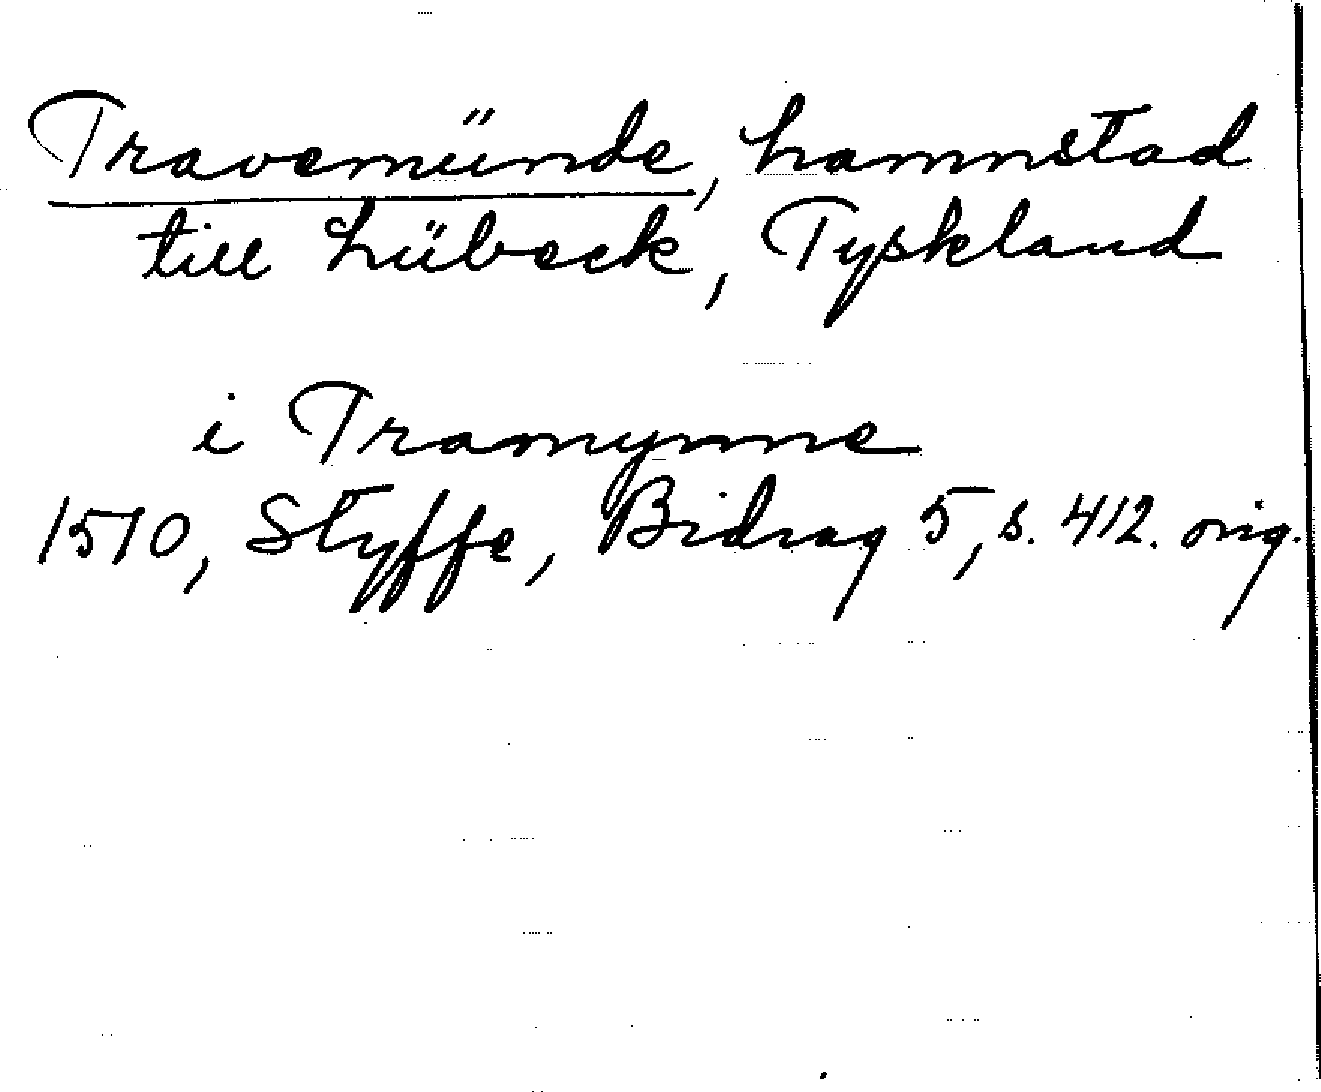 Travemünde, hamnstad
till Lübeck, Tyskland
i Tramynne
1510, Styffe, Bidrag 5, s. 412. orig.